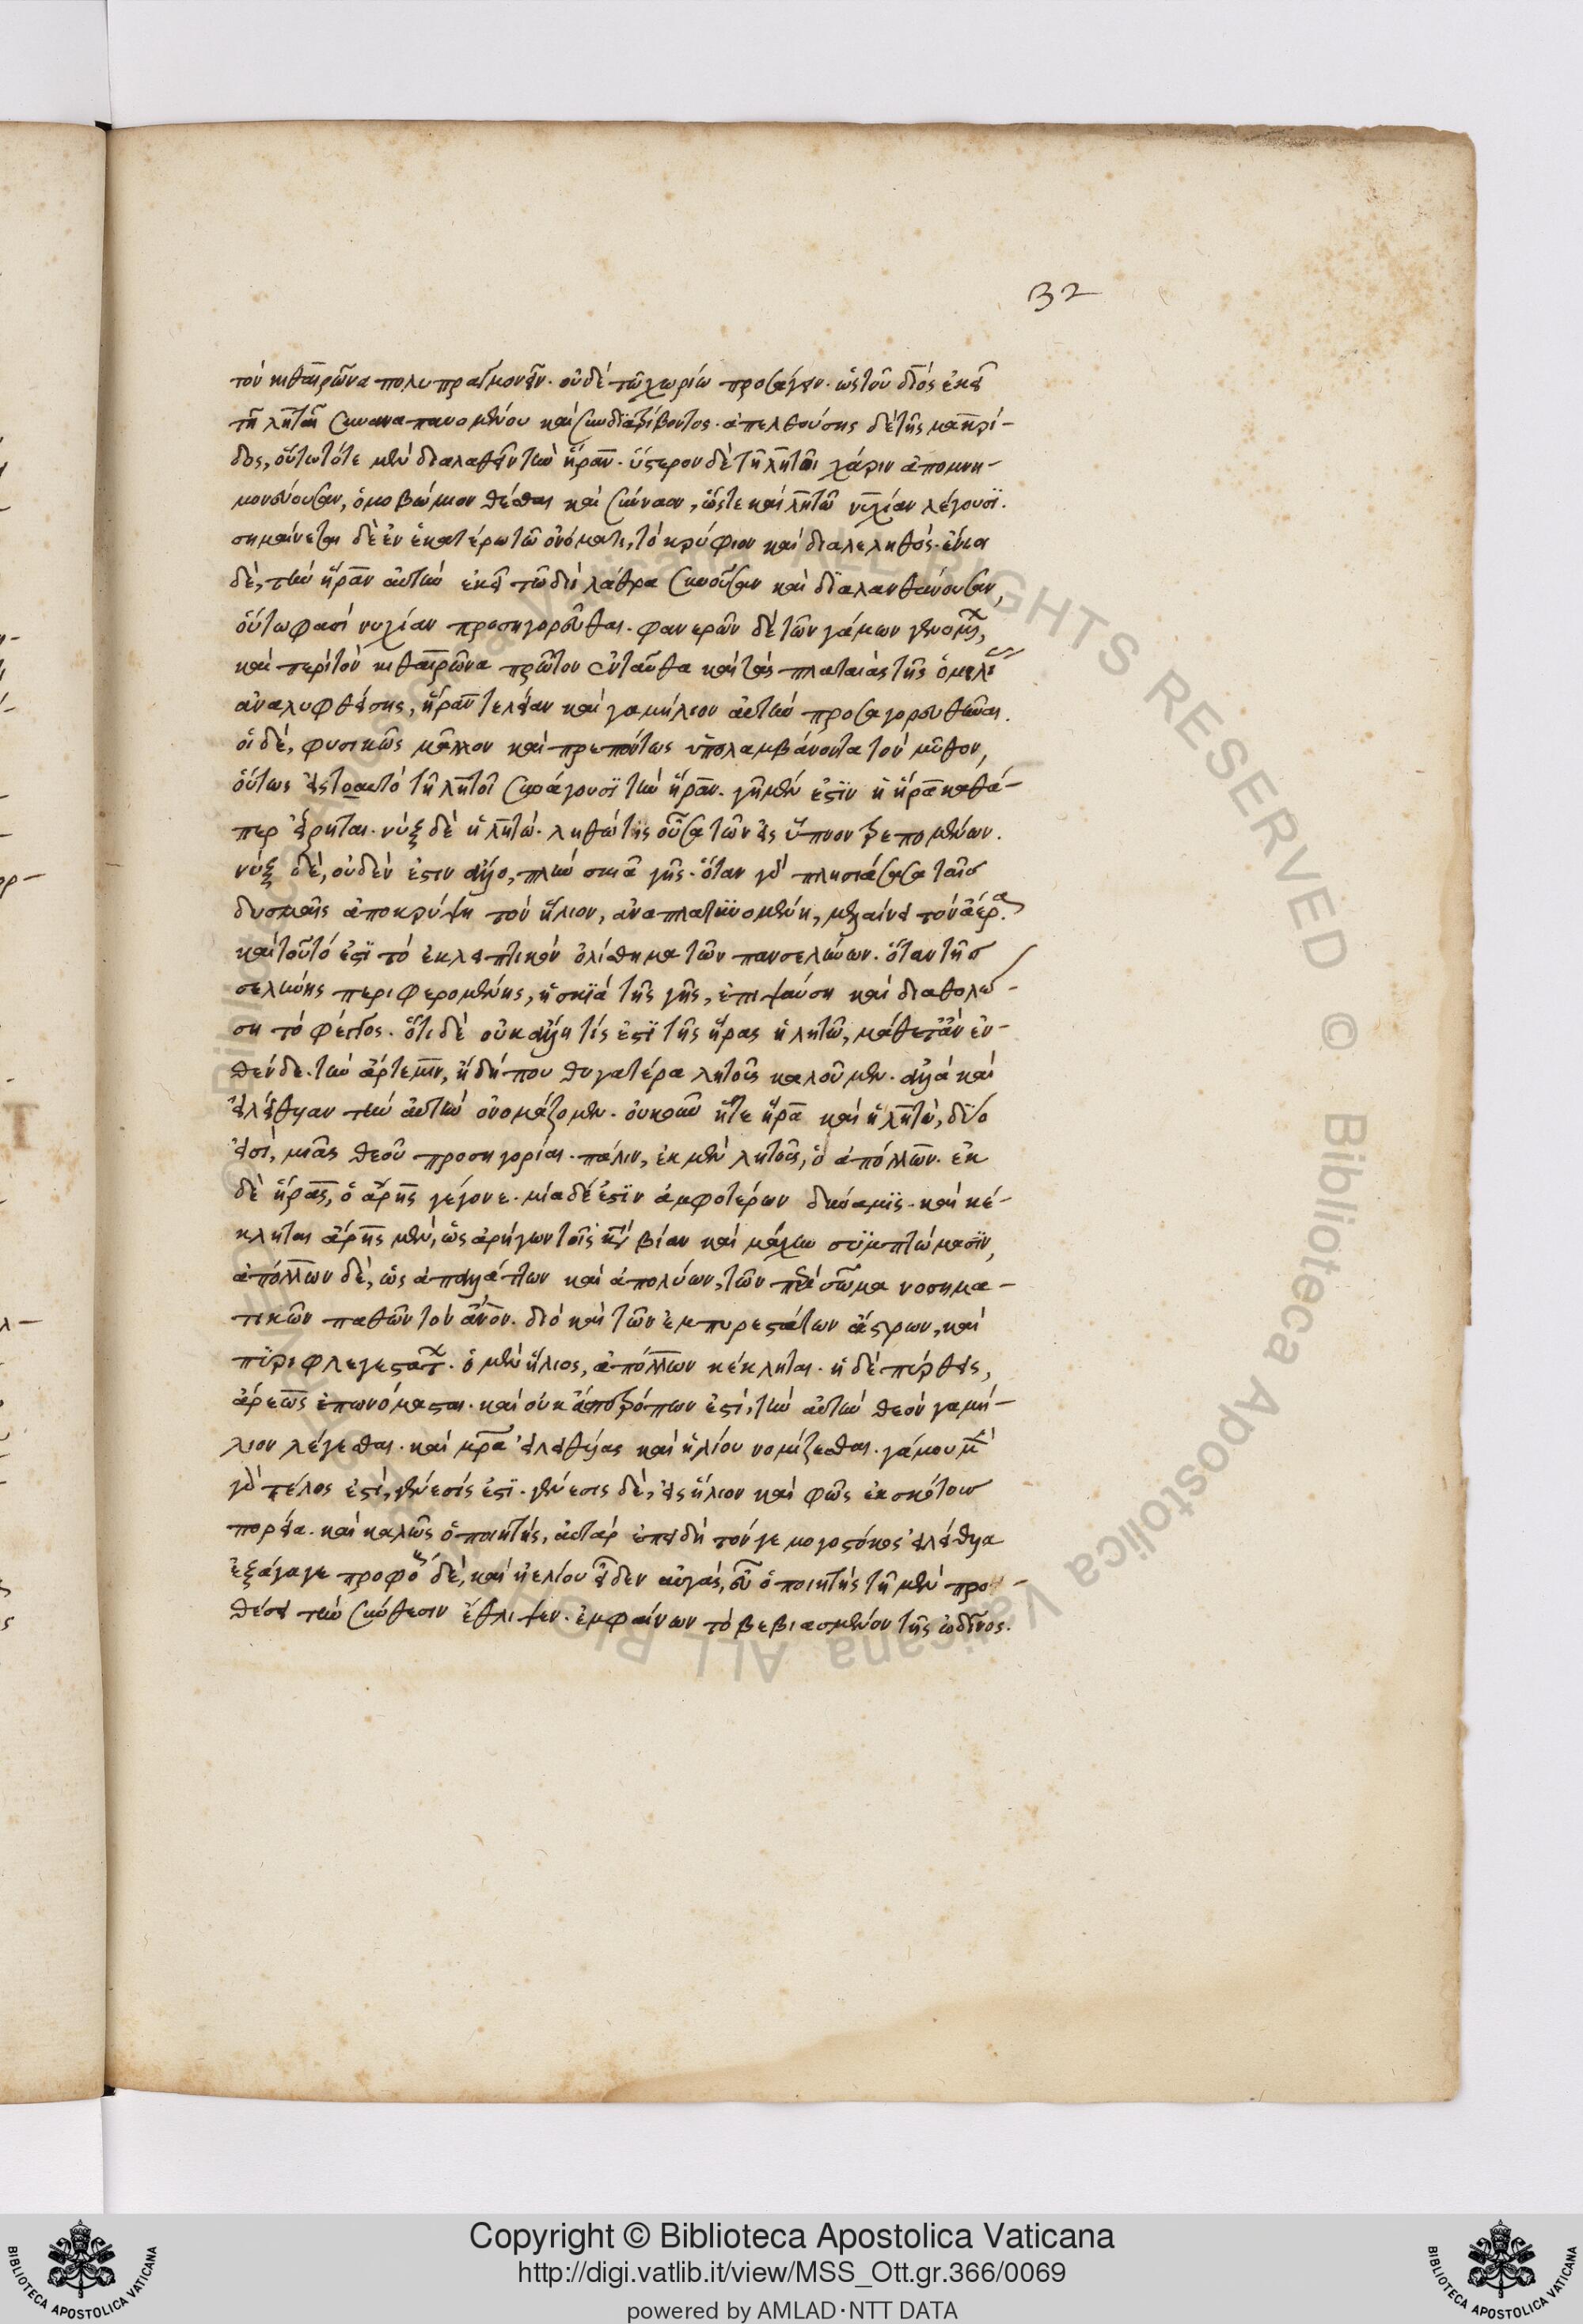 32
τὸν κιθαιρῶνα πολυπραγμονεῖν. οὐδὲ τῷ χωρίῳ προσάγειν. ὡς τοῦ διὸς ἐκεῖ
τῇ λητοῖ συναναπαυομένου καὶ συνδιατρίβοντος. ἀπελθούσης δὲ τῆς μακρί-
δος, οὕτω τότε μὲν διαλαθεῖν τὴν ἥραν. ὕστερον δὲ τῇ λητοῖ χάριν ἀπομνη-
μονεύουσαν, ὁμοβώμιον θέσθαι καὶ σύνναον, ὥστε καὶ λητῶ νυχίαν λέγουσι.
σημαίνεται δὲ ἐν ἑκατέρω τῶ ὀνόματι, τὸ κρύφιον καὶ διαλεληθός. ἔνιοι
δὲ, τὴν ἥραν αὐτὴν ἐκεῖ τῶ διὶ λάθρα συνοῦσαν καὶ διαλανθάνουσαν,
οὕτω φασὶ νυχίαν προσηγορεῦσθαι. φανερῶν δὲ τῶν γάμων γενομένων,
καὶ περὶ τὸν κιθαιρῶνα πρῶτον ἐνταῦθα καὶ τὰς πλαταιὰς τῆς ὁμιλίας
ἀναλυφθείσης, ἥραν τελείαν καὶ γαμήλιον αὐτὴν προσαγορευθῆναι.
οἱ δὲ, φυσικῶς μᾶλλον καὶ πρεπόντως ὑπολαμβάνοντα τὸν μῦθον,
οὕτως εἰς τοαυτὸ τῇ λητοῖ συνάγουσι τὴν ἥραν. γῆ μὲν ἐστὶν ἡ ἥρα καθά-
περ εἴρηται. νὺξ δὲ ἡ λητώ. ληθώ τις οὖσα τῶν εἰς ὕπνον τρεπομένων.
νὺξ δὲ, οὐδὲν ἐστιν ἄλλο, πλὴν σκιὰ γῆς. ὅταν γὰρ πλησιάσασα ταῖς
δυσμαῖς ἀποκρύψη τὸν ἥλιον, ἀναπλατυνομένη, μελαίνει τὸν ἀέρα.
καὶ τοῦτό ἐστι τὸ ἐκλειπτικὸν ὀλίσθημα τῶν πανσελήνων. ὅταν τῆς
σελήνης περιφερομένης, ἡ σκιὰ τῆς γῆς, ἐπιψαύση καὶ διαθολώ-
ση τὸ φέγγος. ὅτι δὲ οὐκ ἄλλη τίς ἐστι τῆς ἥρας ἡ λητῶ, μάθετ' ἂν ἐν-
θένδε. τὴν ἄρτεμιν, ἤδή που θυγατέρα λητοῦς καλοῦμεν. ἀλλὰ καὶ
εἰλείθυιαν τὴν αὐτὴν ὀνομάζομεν. οὐκοῦν ἥτε ἥρα καὶ ἡ λητὼ, δύο
εἰσὶ, μιᾶς θεοῦ προσηγορίαι. πάλιν, ἐκ μὲν λητοῦς, ὁ ἀπόλλων. ἐκ
δὲ ἥρας, ὁ ἄρης γέγονε. μία δέ ἐστιν ἀμφοτέρων δύναμις. καὶ κέ-
κληται ἄρης μὲν, ὡς ἀρήγων τοῖς κατὰ βίαν καὶ μάχην συμπτώμασιν,
ἀπόλλων δὲ, ὡς ἀπαλλάττων καὶ ἀπολύων, τῶν περὶ σῶμα νοσημα-
τικῶν παθῶν τὸν ἄνον. διὸ καὶ τῶν ἐμπυρεστάτων ἄστρων, καὶ
πυριφλεγεστάτων. ὁ μὲν ἥλιος, ἀπόλλων κέκληται. ὁ δὲ πυρόεις,
ἄρεως ἐπωνόμασται. καὶ οὐκ ἀπότρόπων ἐστὶ, τὴν αὐτὴν θεὸν γαμή-
λιον λέγεσθαι. καὶ μρα εἰλειθυίας καὶ ἡλίου νομίζεσθαι. γάμου μὲν
γὰρ τέλος ἐστὶ, γένεσίς ἐστι. γένεσις δὲ, εἰς ἥλιον καὶ φῶς ἐκ σκότους
πορεία. καὶ καλῶς ὁ ποιητής, αὐτὰρ ἐπειδὴ τόνγε μογοστόκος εἰλείθυια
ἐξάγαγε προφόωσδὲ, καὶ ἠελίου εἶδεν αὐγάς, εὖ ὁ ποιητὴς τῇ μὲν προ-
θέσει τὴν σύνθεσιν ἔθλιψεν. ἐμφαίνων τὸ βεβιασμένον τῆς ὠδῖνος.
Biblioteca Apostolica Vaticana ALL RIGHTS RESERVED ©
Copyright © Biblioteca Apostolica Vaticana
http://digi.vatlib.it/view/MSS_Ott.gr.366/0069
powered by AMLAD·NTT DATA
BIBLIOTECA APOSTOLICA VATICANA
BIBLIOTECA APOSTOLICA VATICANA